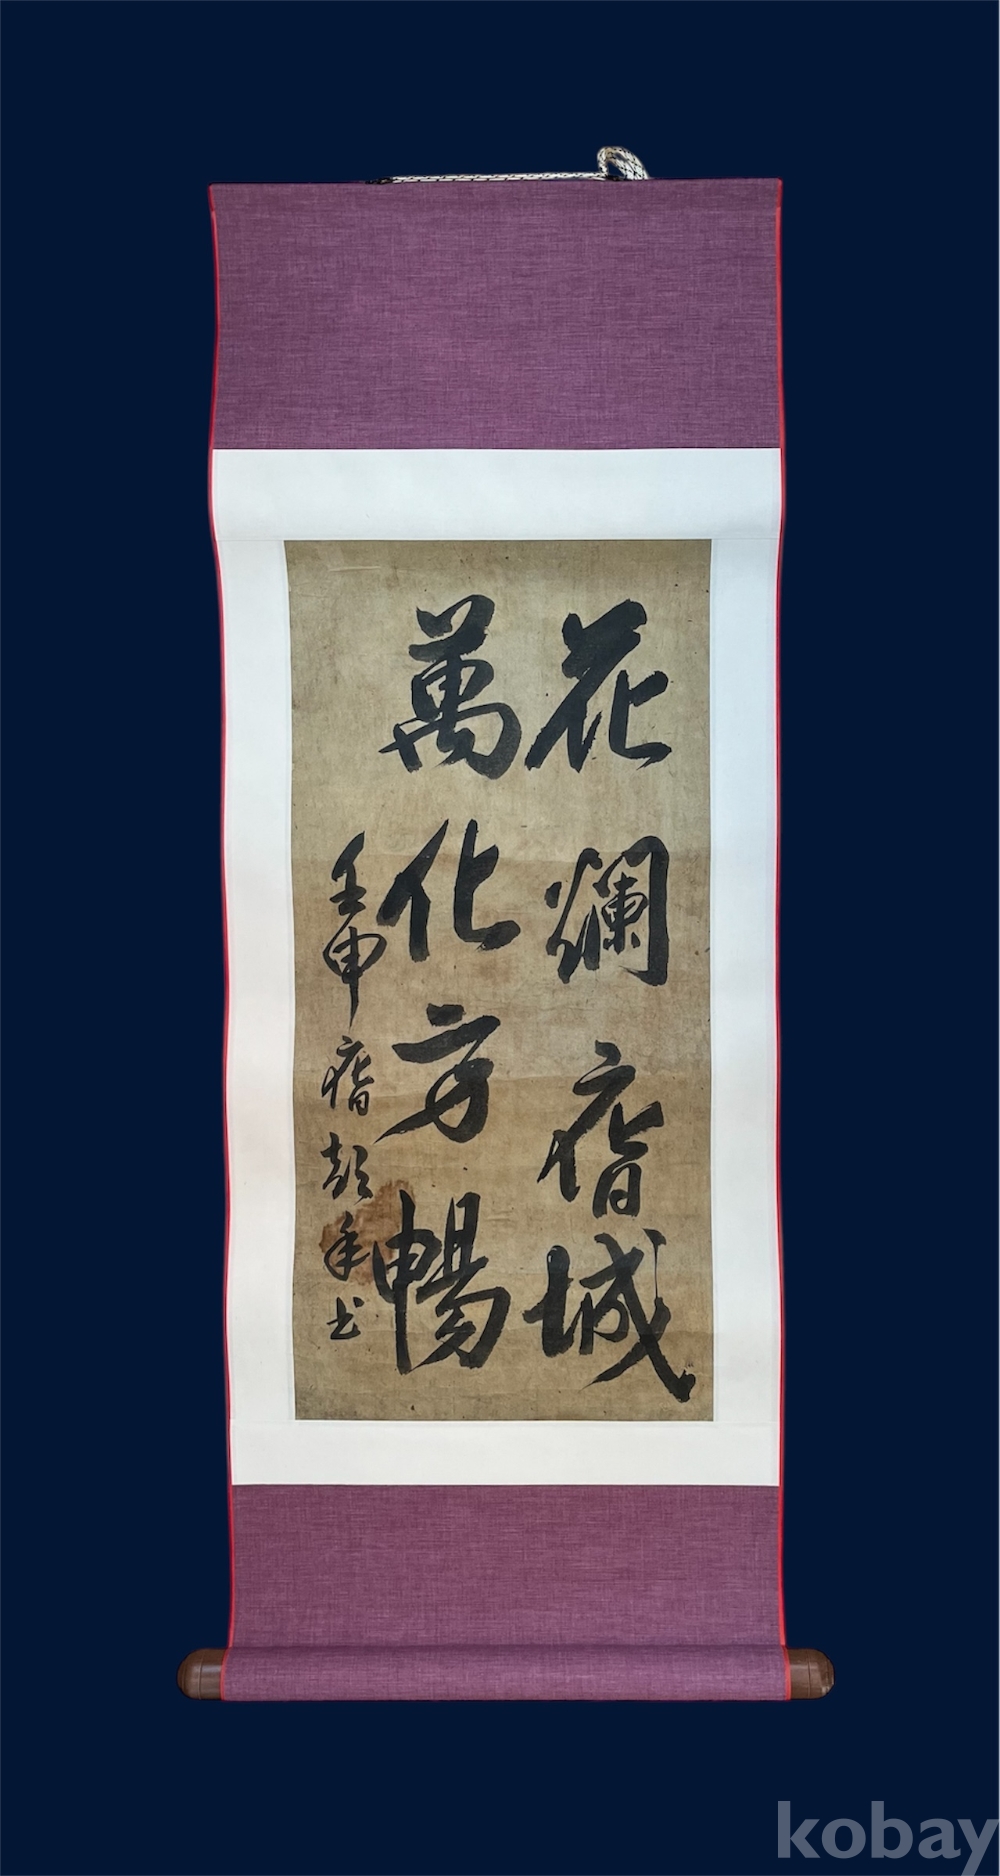 花爛春城
萬化方暢
壬申春彭年書
kobay